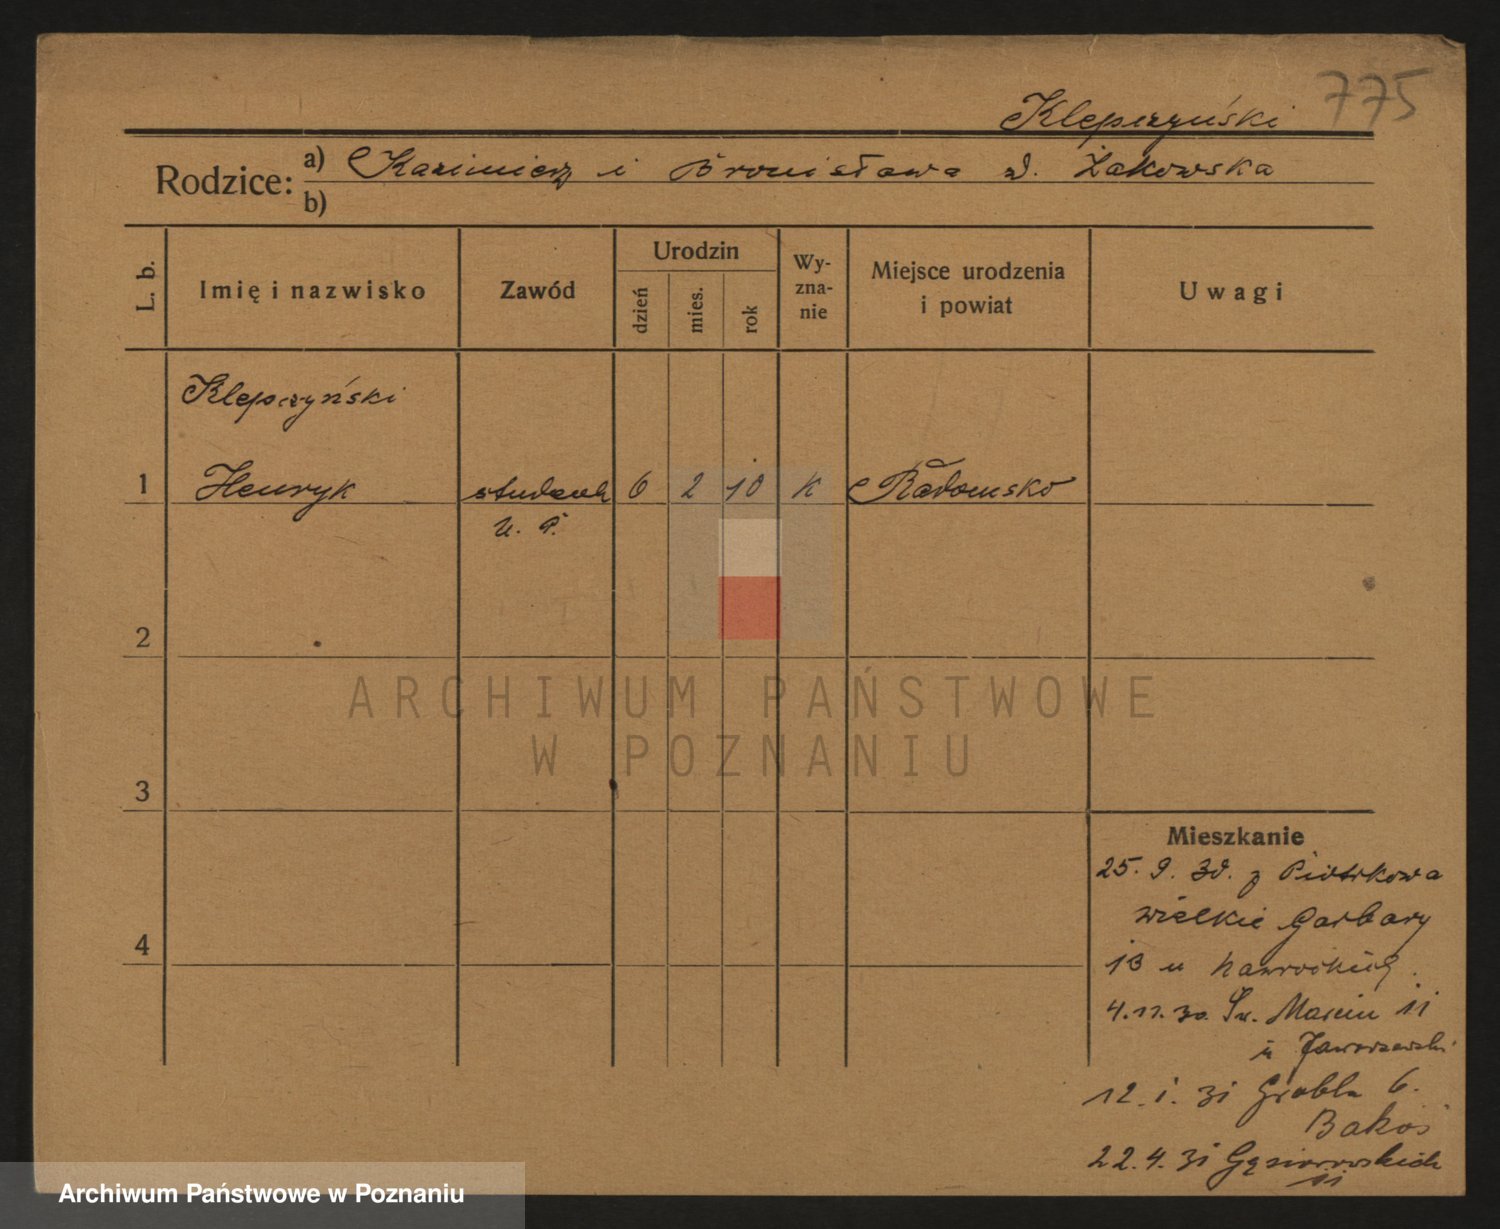 775
Klepczyński
Rodzice: a) Kazimierz i Bronisława d. Żakowska
b)
L. b.
Imię i nazwisko
Zawód
Urodzin
dzień
mies.
rok
Wy-
zna-
nie
Miejsce urodzenia
i powiat
Uwagi
Klepczyński
1 Henryk student 6 2 10 K Radomsko
U. P.
2
3
4
Mieszkanie
25. 9. 30. z Piotrkowa
wielkie Garbary
13 u Nawrockiej.
4. 11. 30. Św. Marcin 11
u
12. i. 31 Grobla 6.
Bakoś
22. 4. 31 Gąsiorowskich
11
ARCHIWUM PAŃSTWOWE
W POZNANIU
Archiwum Państwowe w Poznaniu